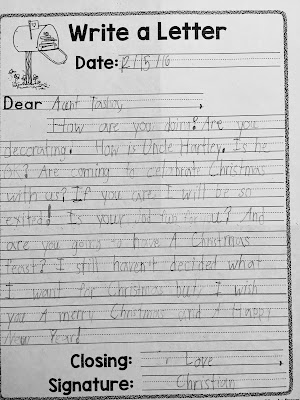 Write a Letter
Date: 12/15/16
Dear Aunt Tashay,
How are you doin? Are you
decorating? How is Uncle Hartley. Is he
Ok? Are coming to celebrate Christmas
with us? If you are I will be so
exited! Is your fun for you? And
are you going to have A Christmas
feast? I still haven't decided what
I want for Christmas but I wish
you A merry Christmas and A Happy
New Year!
Closing: Love,
Signature: Christian